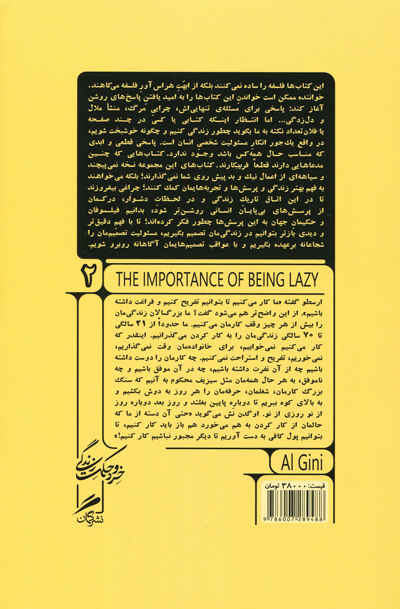 این کتاب‌ها فلسفه را ساده نمی‌کنند بلکه از ابهتِ هراس‌آورِ فلسفه می‌کاهند.
خواننده ممکن است خواندن این کتاب‌ها را به امید یافتن پاسخ‌های روشن
آغاز کند: پاسخی برای مسئله‌ی تنهایی‌اش، چراییِ مرگ، منشأ ملال
و دل‌زدگی... اما انتظار اینکه کتابی یا کسی در چند صفحه
با فلان‌تعداد نکته به ما بگوید چطور زندگی کنیم و چگونه خوشبخت شویم،
در واقع یک‌جور انکار مسئولیت شخصی انسان است. پاسخی قطعی و ابدی
که مناسب حال همه‌کس باشد وجود ندارد. کتاب‌هایی که چنین
مدعاهایی دارند قطعاً فریبکارند. کتاب‌های این مجموعه نسخه نمی‌پیچند
و سیاهه‌ای از اعمال نیک و بد پیش روی شما نمی‌گذارند؛ بلکه می‌خواهند
به فهم بهتر زندگی و پرسش‌ها و تجربه‌هایمان کمک کنند؛ چراغی بیفروزند
تا در این اتاق تاریک زندگی و در لحظات دشوار، درکمان
از پرسش‌های بی‌پایان انسانی روشن‌تر شود، بدانیم فیلسوفان
و حکیمان جهان به این پرسش‌ها چطور فکر کرده‌اند؛ تا با فهم دقیق‌تر
و دیدی بازتر بتوانیم در زندگی‌مان تصمیم بگیریم، مسئولیت تصمیم‌مان را
شجاعانه برعهده بگیریم و با عواقب تصمیم‌هایمان آگاهانه روبرو شویم.
۲
THE IMPORTANCE OF BEING LAZY
ارسطو گفته «ما کار می‌کنیم تا بتوانیم تفریح کنیم و فراغت داشته
باشیم». از این واضح‌تر هم می‌شود گفت؟ ما بزرگسالان زندگی‌مان
را بیش از هر چیز وقف کارمان می‌کنیم. ما حدوداً از ۲۱ سالگی
تا ۷۰ سالگی زندگی‌مان را به کار کردن می‌گذرانیم. اینقدر که
کار می‌کنیم نمی‌خوابیم، برای خانواده‌مان وقت نمی‌گذاریم،
نمی‌خوریم، تفریح و استراحت نمی‌کنیم. چه کارمان را دوست داشته
باشیم چه از آن نفرت داشته باشیم، چه در آن موفق باشیم و چه
ناموفق، به هر حال همه‌مان مثل سیزیف محکوم به آنیم که سنگ
بزرگ کارمان، شغلمان، حرفه‌مان را هر روز به دوش بکشیم و
به بالای کوه ببریم تا دوباره پایین بغلتد و روز بعد دوباره روز
از نو روزی از نو. اوگدن نش می‌گوید «حتی آن دسته از ما که
حالمان از کار کردن به هم می‌خورد هم باز باید کار کنیم، تا
بتوانیم پول کافی به دست آوریم تا دیگر مجبور نباشیم کار کنیم!»
Al Gini
خرد و حکمت زندگی
نشر گمان
قیمت: ۳۸۰۰۰ تومان
9 786007 289488